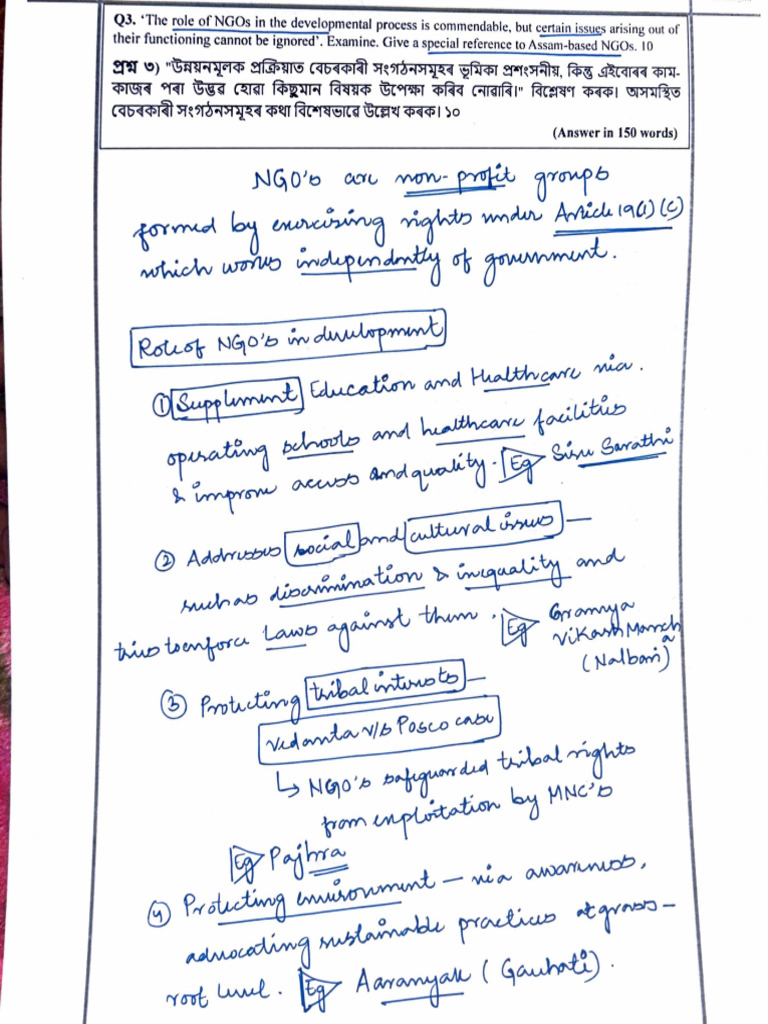 Q3. 'The role of NGOs in the developmental process is commendable, but certain issues arising out of
their functioning cannot be ignored'. Examine. Give a special reference to Assam-based NGOs. 10
প্ৰশ্ন ৩) "উন্নয়নমূলক প্ৰক্ৰিয়াত বেচৰকাৰী সংগঠনসমূহৰ ভূমিকা প্ৰশংসনীয়, কিন্তু এইবোৰৰ কাম-
কাজৰ পৰা উদ্ভৱ হোৱা কিছুমান বিষয়ক উপেক্ষা কৰিব নোৱাৰি।" বিশ্লেষণ কৰক। অসমস্থিত
বেচৰকাৰী সংগঠনসমূহৰ কথা বিশেষভাৱে উল্লেখ কৰক। ১০
(Answer in 150 words)
NGO's are non-profit groups
formed by exercising rights under Article 19(1)(c)
which works independently of government.
Role of NGO's in development
① Supplement Education and Healthcare via.
operating schools and healthcare facilities
& improve access and quality. Eg Sisu Sarathi
② Addresses social and cultural issues —
such as discrimination & inequality and
tries to enforce Laws against them. Eg Gramya
Vikash Mancha
(Nalbari)
③ Protecting tribal interests —
Vedanta v/s Posco case
↳ NGO's safeguarded tribal rights
from exploitation by MNC's
Eg Pajhra
④ Protecting environment — via awareness,
advocating sustainable practices at grass-
root level. Eg Aaranyak (Gauhati).